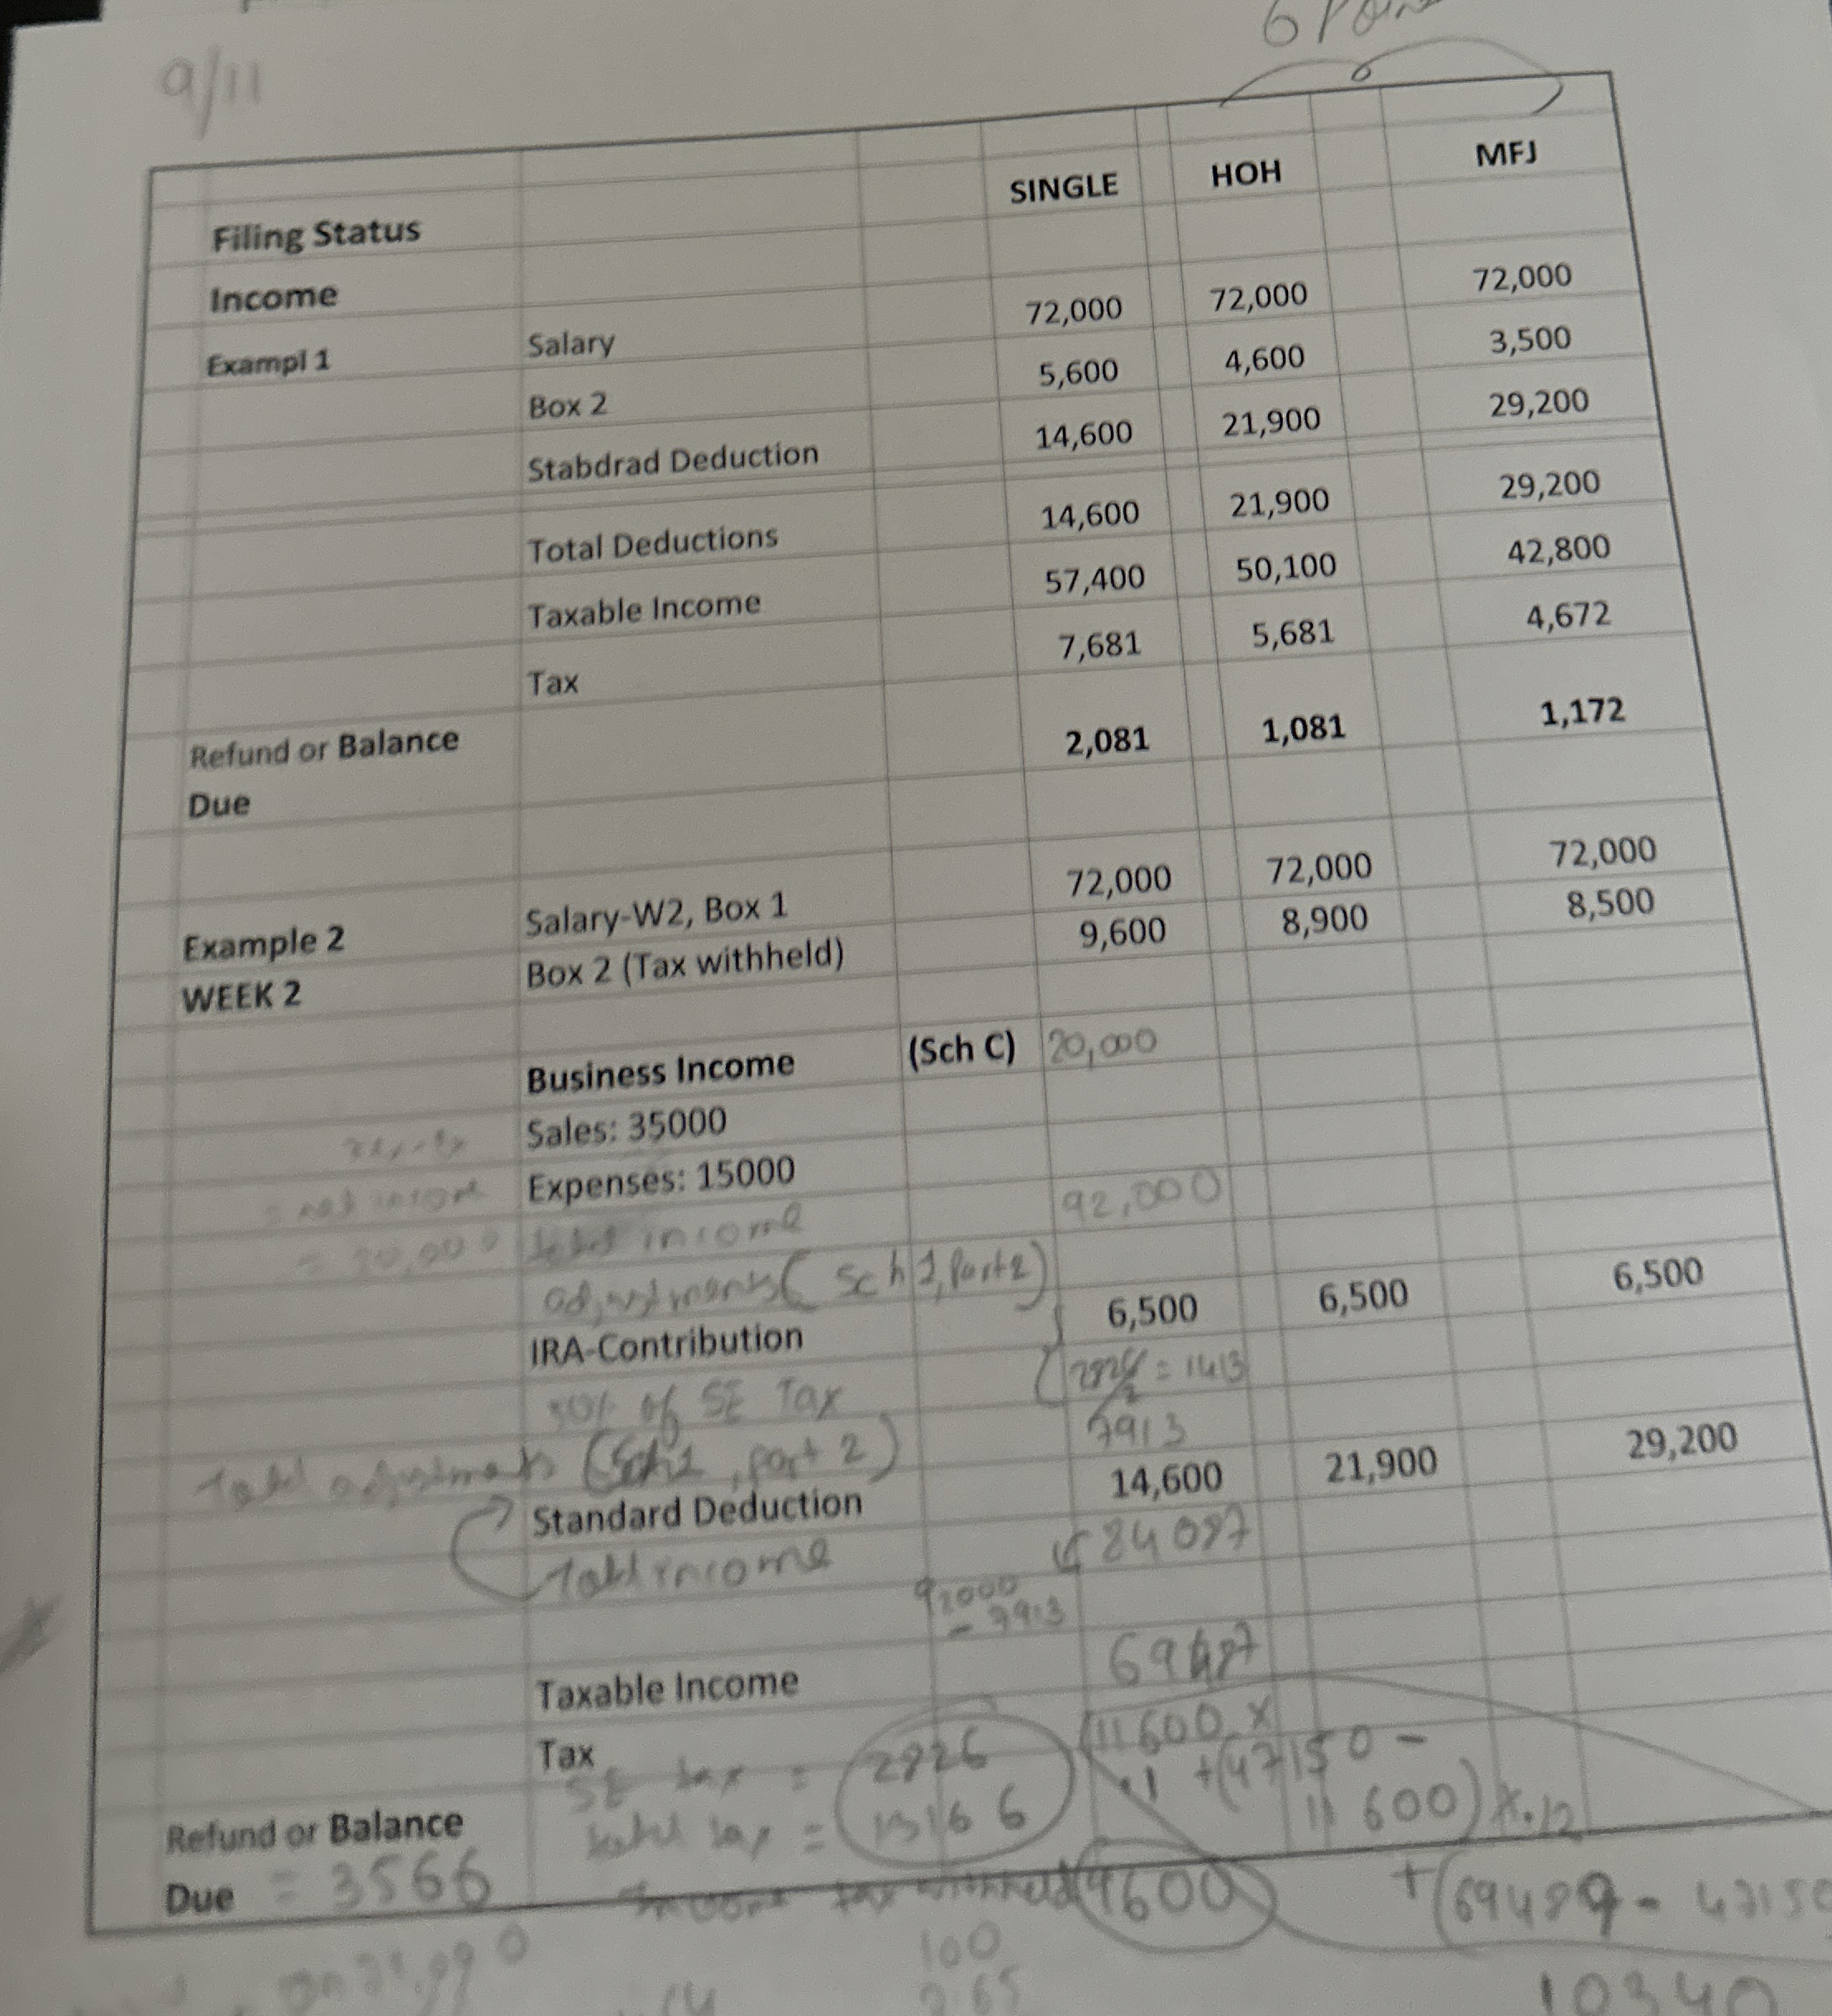 6 Poin
9/11
SINGLE HOH MFJ
Filing Status
Income
Exampl 1 Salary 72,000 72,000 72,000
Box 2 5,600 4,600 3,500
Stabdrad Deduction 14,600 21,900 29,200
Total Deductions 14,600 21,900 29,200
Taxable Income 57,400 50,100 42,800
Tax 7,681 5,681 4,672
Refund or Balance
Due 2,081 1,081 1,172
Example 2 Salary-W2, Box 1 72,000 72,000 72,000
WEEK 2 Box 2 (Tax withheld) 9,600 8,900 8,500
Business Income (Sch C) 20,000
Sales: 35000
Expenses: 15000
= net income
= 20,000 total income 92,000
adjustments( Sch 1, Part 2)
IRA-Contribution 6,500 6,500 6,500
50% of SE Tax 2826/2 = 1413
Total adjustments (Sch 1, part 2) 7913
Standard Deduction 14,600 21,900 29,200
Total income 84087
92000
- 7913
Taxable Income 69487
Tax (11600 x
.1 + (47150 -
11600) x .12
SE tax = 2826
total tax = 13166
Refund or Balance
Due = 3566
Income tax withheld 9600
+ (69487 - 47150
100
10340